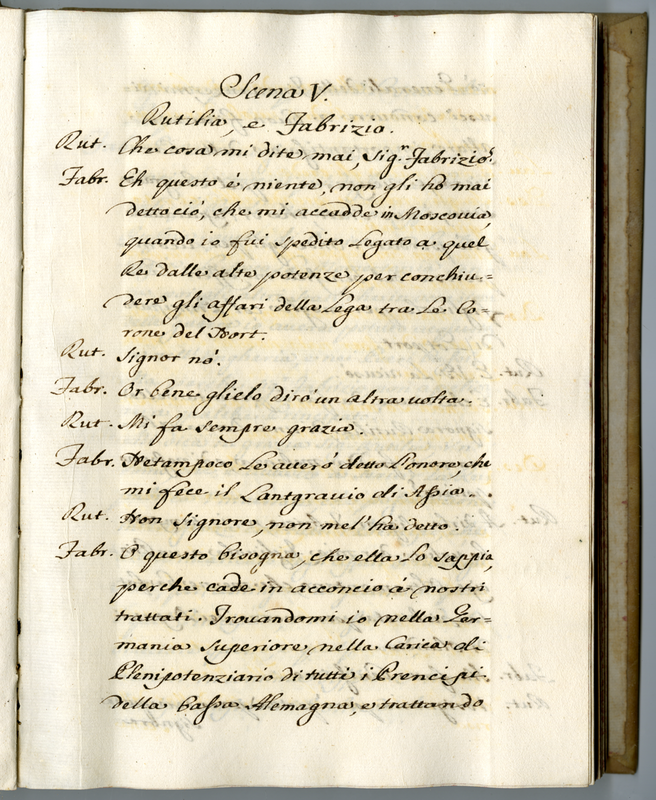 Scena V.
Rutilia, e Fabrizio.
Rut. Che cosa mi dite mai, Sig.r Fabrizio?
Fabr. Eh questo é niente, non gli ho mai
detto ció, che mi accadde in Moscovia,
quando io fui spedito Legato a quel
Re dalle alte potenze per conchiu=
dere gli affari della Lega tra Le Co=
rone del Nort.
Rut. Signor nó.
Fabr. Or bene glielo diró un altra volta.
Rut. Mi fa sempre grazia.
Fabr. Netampoco Le averó detto L'onore, che
mi fece il Lantgravio di Assia.
Rut. Non Signore, non mel'ha detto.
Fabr. O questo bisogna, che ella Lo sappia,
perche cade in acconcio á nostri
trattati. Trovandomi io nella Ger=
mania superiore nella Carica di
Plenipotenziario di tutti i Prencipi
della bassa Alemagna, e trattando